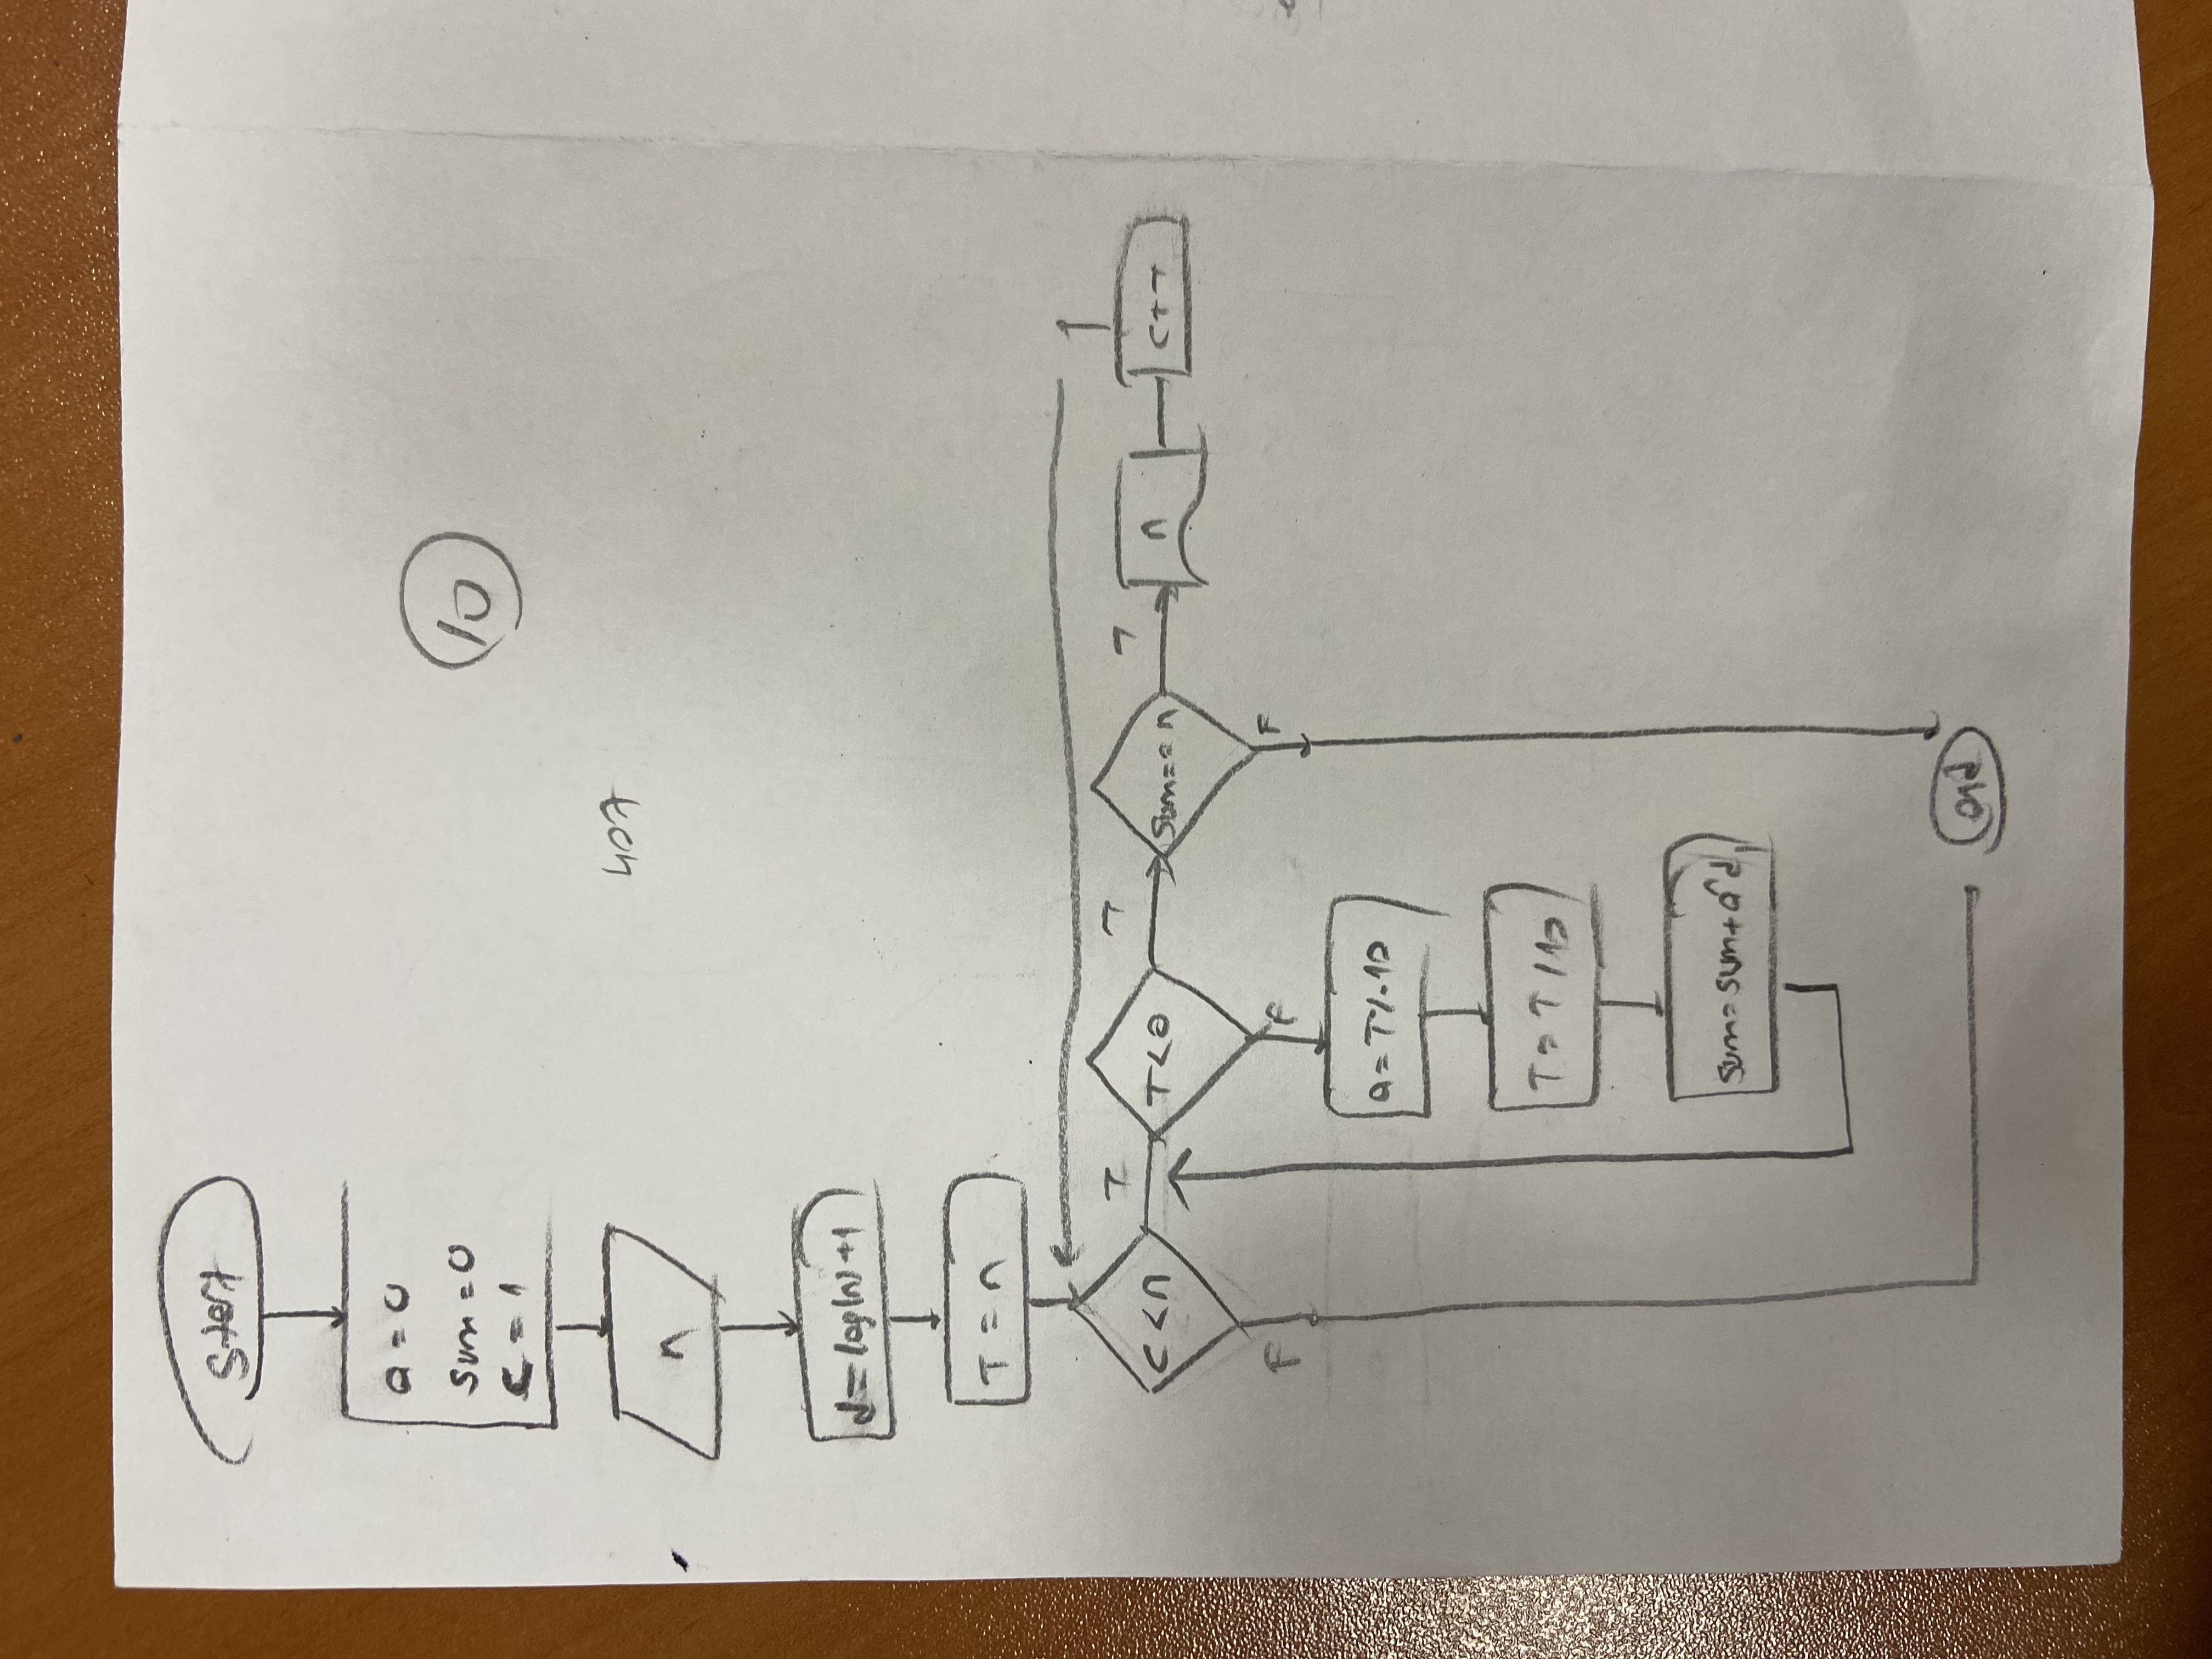 Start
a = 0
sum = 0
c = 1
10
n
407
d = log(n) + 1
T = n
T
T
T
c < n
T < 0
sum == n
n
c++
F
F
F
a = T % 10
T = T / 10
sum = sum + a^d
end